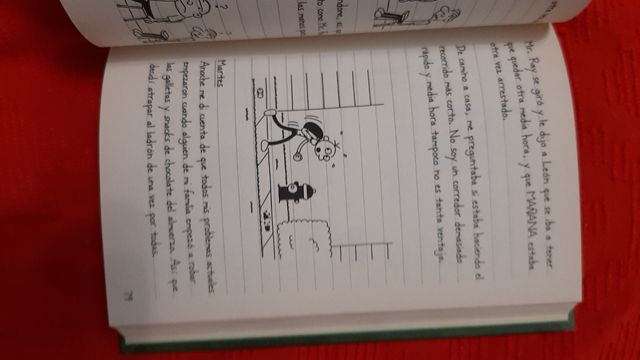 Mr. Ray se giró y le dijo a León que se iba a tener
que quedar otra media hora, y que MAÑANA estaba
otra vez arrestado.
De camino a casa, me preguntaba si estaba haciendo el
recorrido más corto. No soy un corredor demasiado
rápido y media hora tampoco no es tanta ventaja.
Martes
Anoche me di cuenta de que todos mis problemas actuales
empezaron cuando alguien de mi familia empezó a robar
las galletas y snacks de chocolate del almuerzo. Así que
decidí atrapar al ladrón de una vez por todas.
79